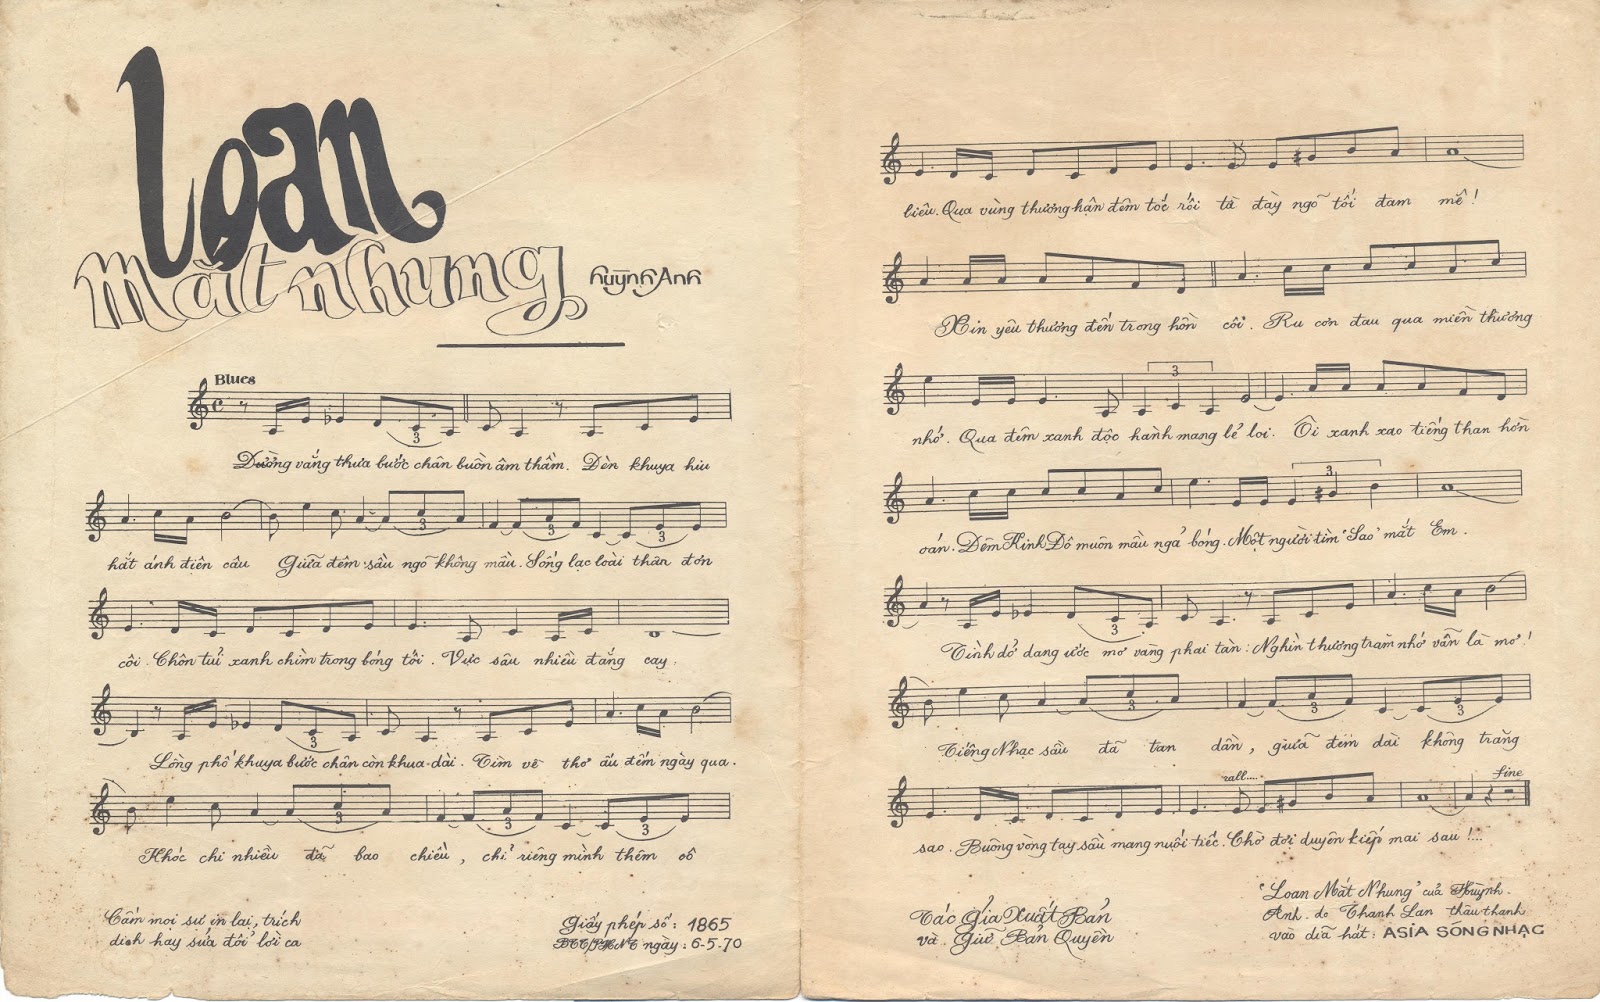 Loan
mắt nhung
Huỳnh Anh
Blues
3
Đường vắng thưa bước chân buồn âm thầm. Đèn khuya hiu
3 3
hắt ánh điện câu Giữa đêm sầu ngõ không mầu. Sống lạc loài thân đơn
côi. Chôn tuổi xanh chìm trong bóng tối. Vực sâu nhiều đắng cay.
3
Lòng phố khuya bước chân còn khua dài. Tìm về thơ ấu đếm ngày qua.
3 3
Khóc chi nhiều đã bao chiều, chỉ riêng mình thêm cô
Cấm mọi sự in lại, trích
dich hay sửa đổi lời ca
Giấy phép số: 1865
ngày: 6-5.70
liêu. Qua vùng thương hận đêm tóc rối tà đày ngõ tối đam mê!
Xin yêu thương đến trong hồn côi. Ru cơn đau qua miền thương
3
nhớ. Qua đêm xanh độc hành mang lẻ loi. Ôi xanh xao tiếng than hờn
3
oán. Đêm Kinh Đô muôn mầu ngả bóng. Một người tìm "Sao" mắt Em.
3
Tình dở dang ước mơ vàng phai tàn: Nghìn thương trăm nhớ vẫn là mơ!
3 3
Tiếng Nhạc sầu đã tan dần, giữa đêm dài không trăng
rall.... fine
sao. Buông vòng tay sầu mang nuối tiếc. Chờ đợi duyên kiếp mai sau!...
Tác Gỉa Xuất Bản
và Giữ Bản Quyền
"Loan Mắt Nhung" của Huỳnh
Anh. do Thanh Lan thâu thanh
vào dĩa hát: ASIA SÓNG NHẠC